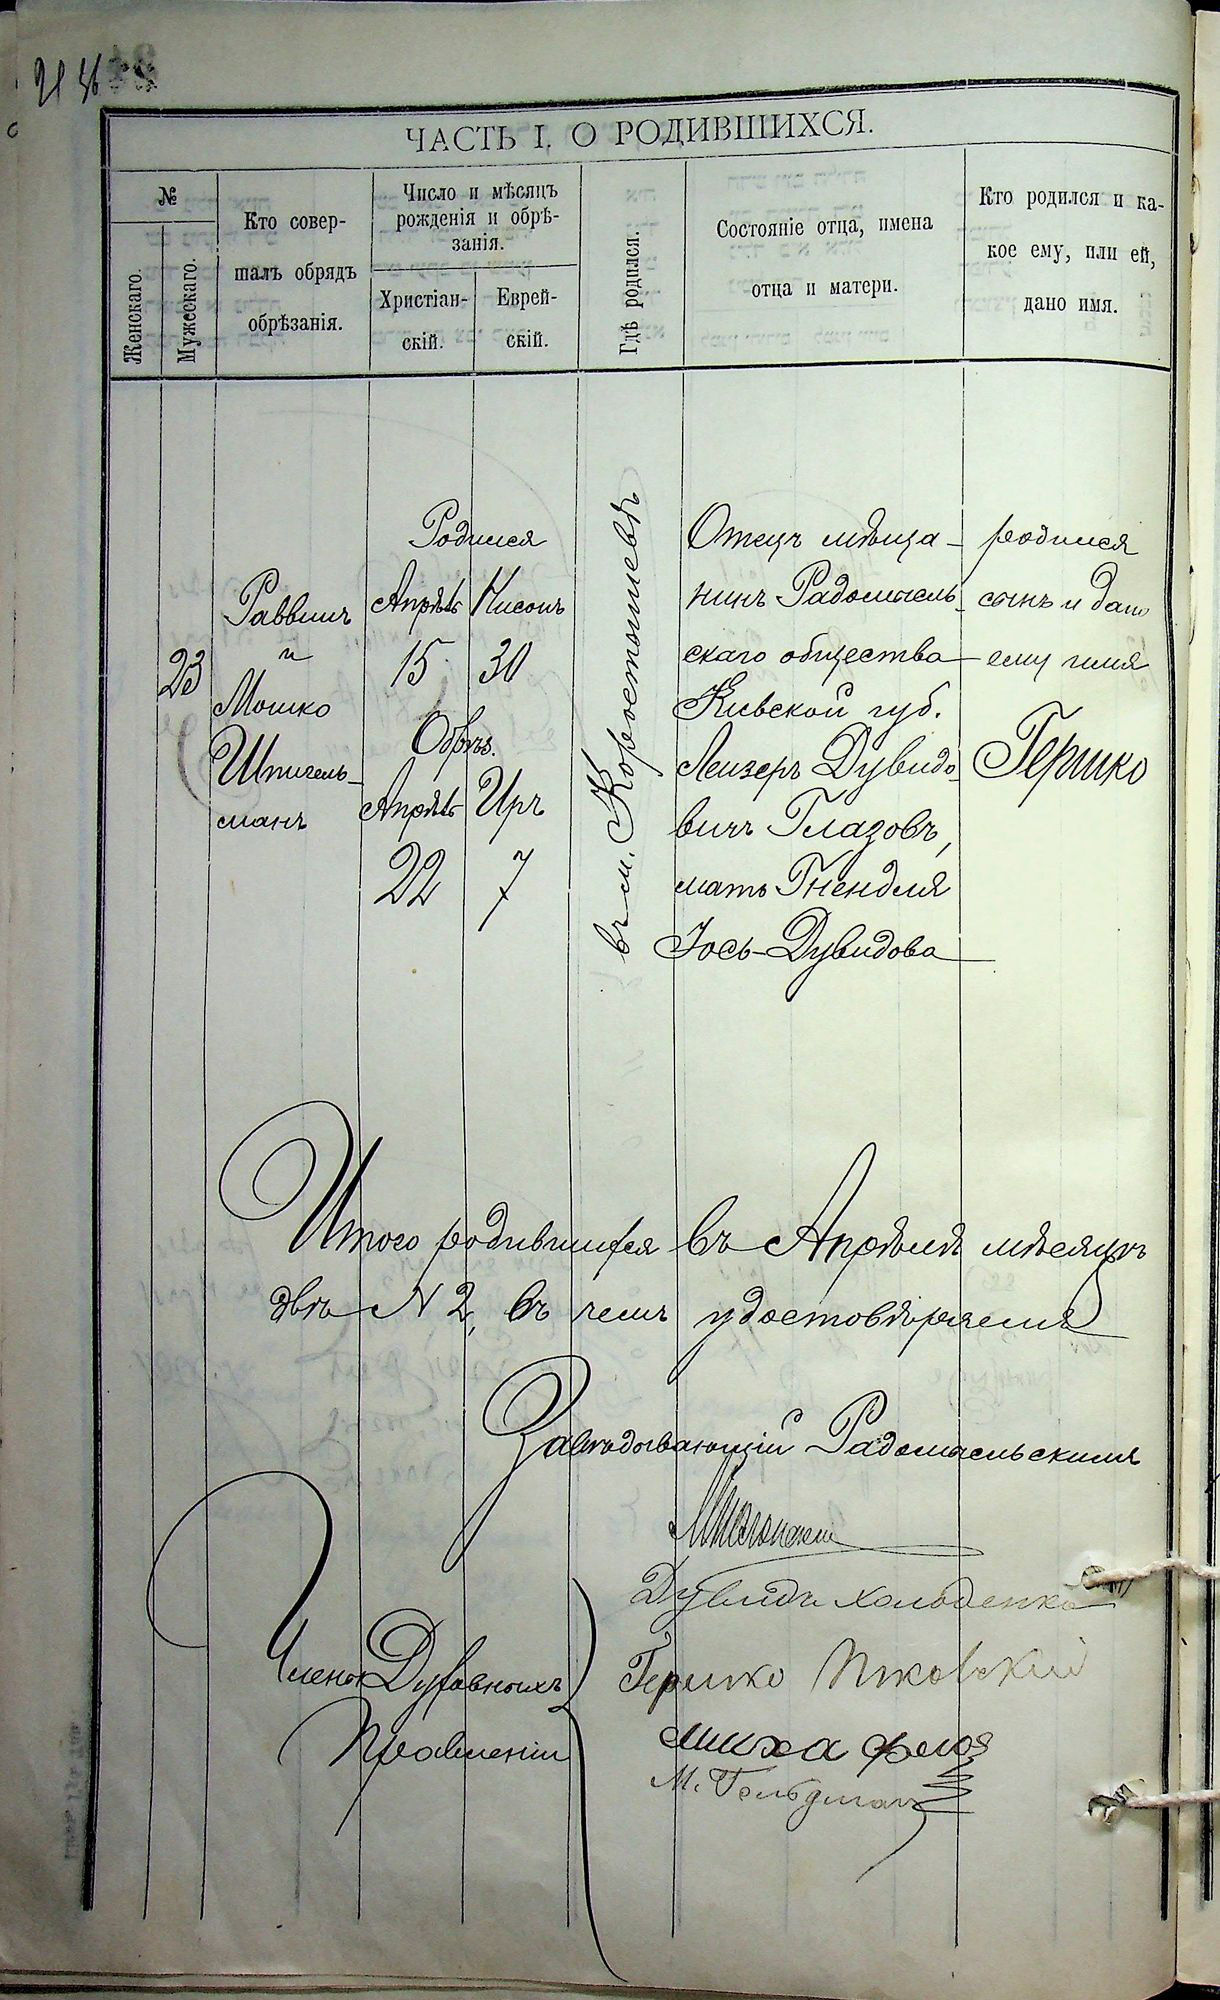 ЧАСТЬ I. О РОДИВШИХСЯ.
№
Женскаго.
Мужескаго.
Кто совер-
шалъ обрядъ
обрѣзанія.
Число и мѣсяцъ
рожденія и обрѣ-
занія.
Христіан-
скій.
Еврей-
скій.
Гдѣ родился.
Состояніе отца, имена
отца и матери.
Кто родился и ка-
кое ему, или ей,
дано имя.
23
Раввинъ
и
Мошко
Шпигель-
манъ
Родился
Апрѣль
15
Нисонъ
30
Обрѣз.
Апрѣль
22
Иръ
7
въ м. Коростышевѣ
Отецъ мѣща-
нинъ Радомысль-
скаго общества
Кіевской губ.
Лейзеръ Дувидо-
вичъ Глазовъ,
мать Гнендля
Іось-Дувидова
родился
сынъ и дано
ему имя
Гершко
Итого родившихся въ Апрѣлѣ мѣсяцѣ
двѣ N 2, въ чемъ удостовѣряемъ
Завѣдывающій Радомысльскимъ
Дувидъ Хальденко
Члены Духовныхъ
Правленій
Гершко
М. Гольдман